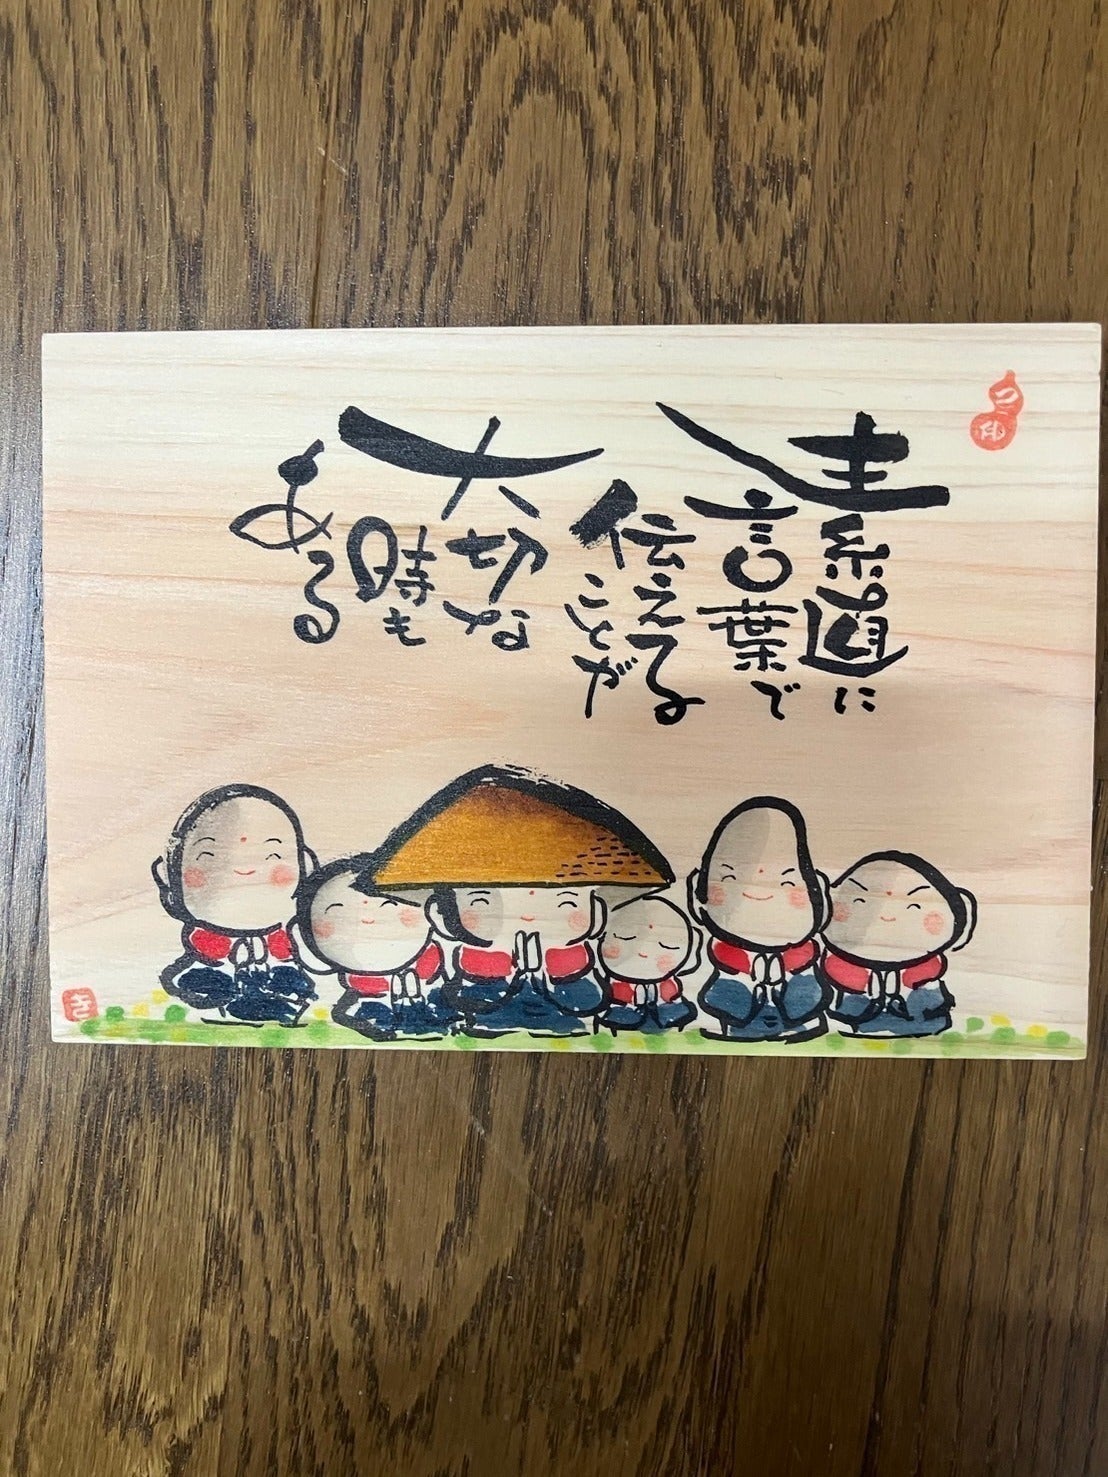 素直に
言葉で
伝える
ことが
大切な
時も
ある